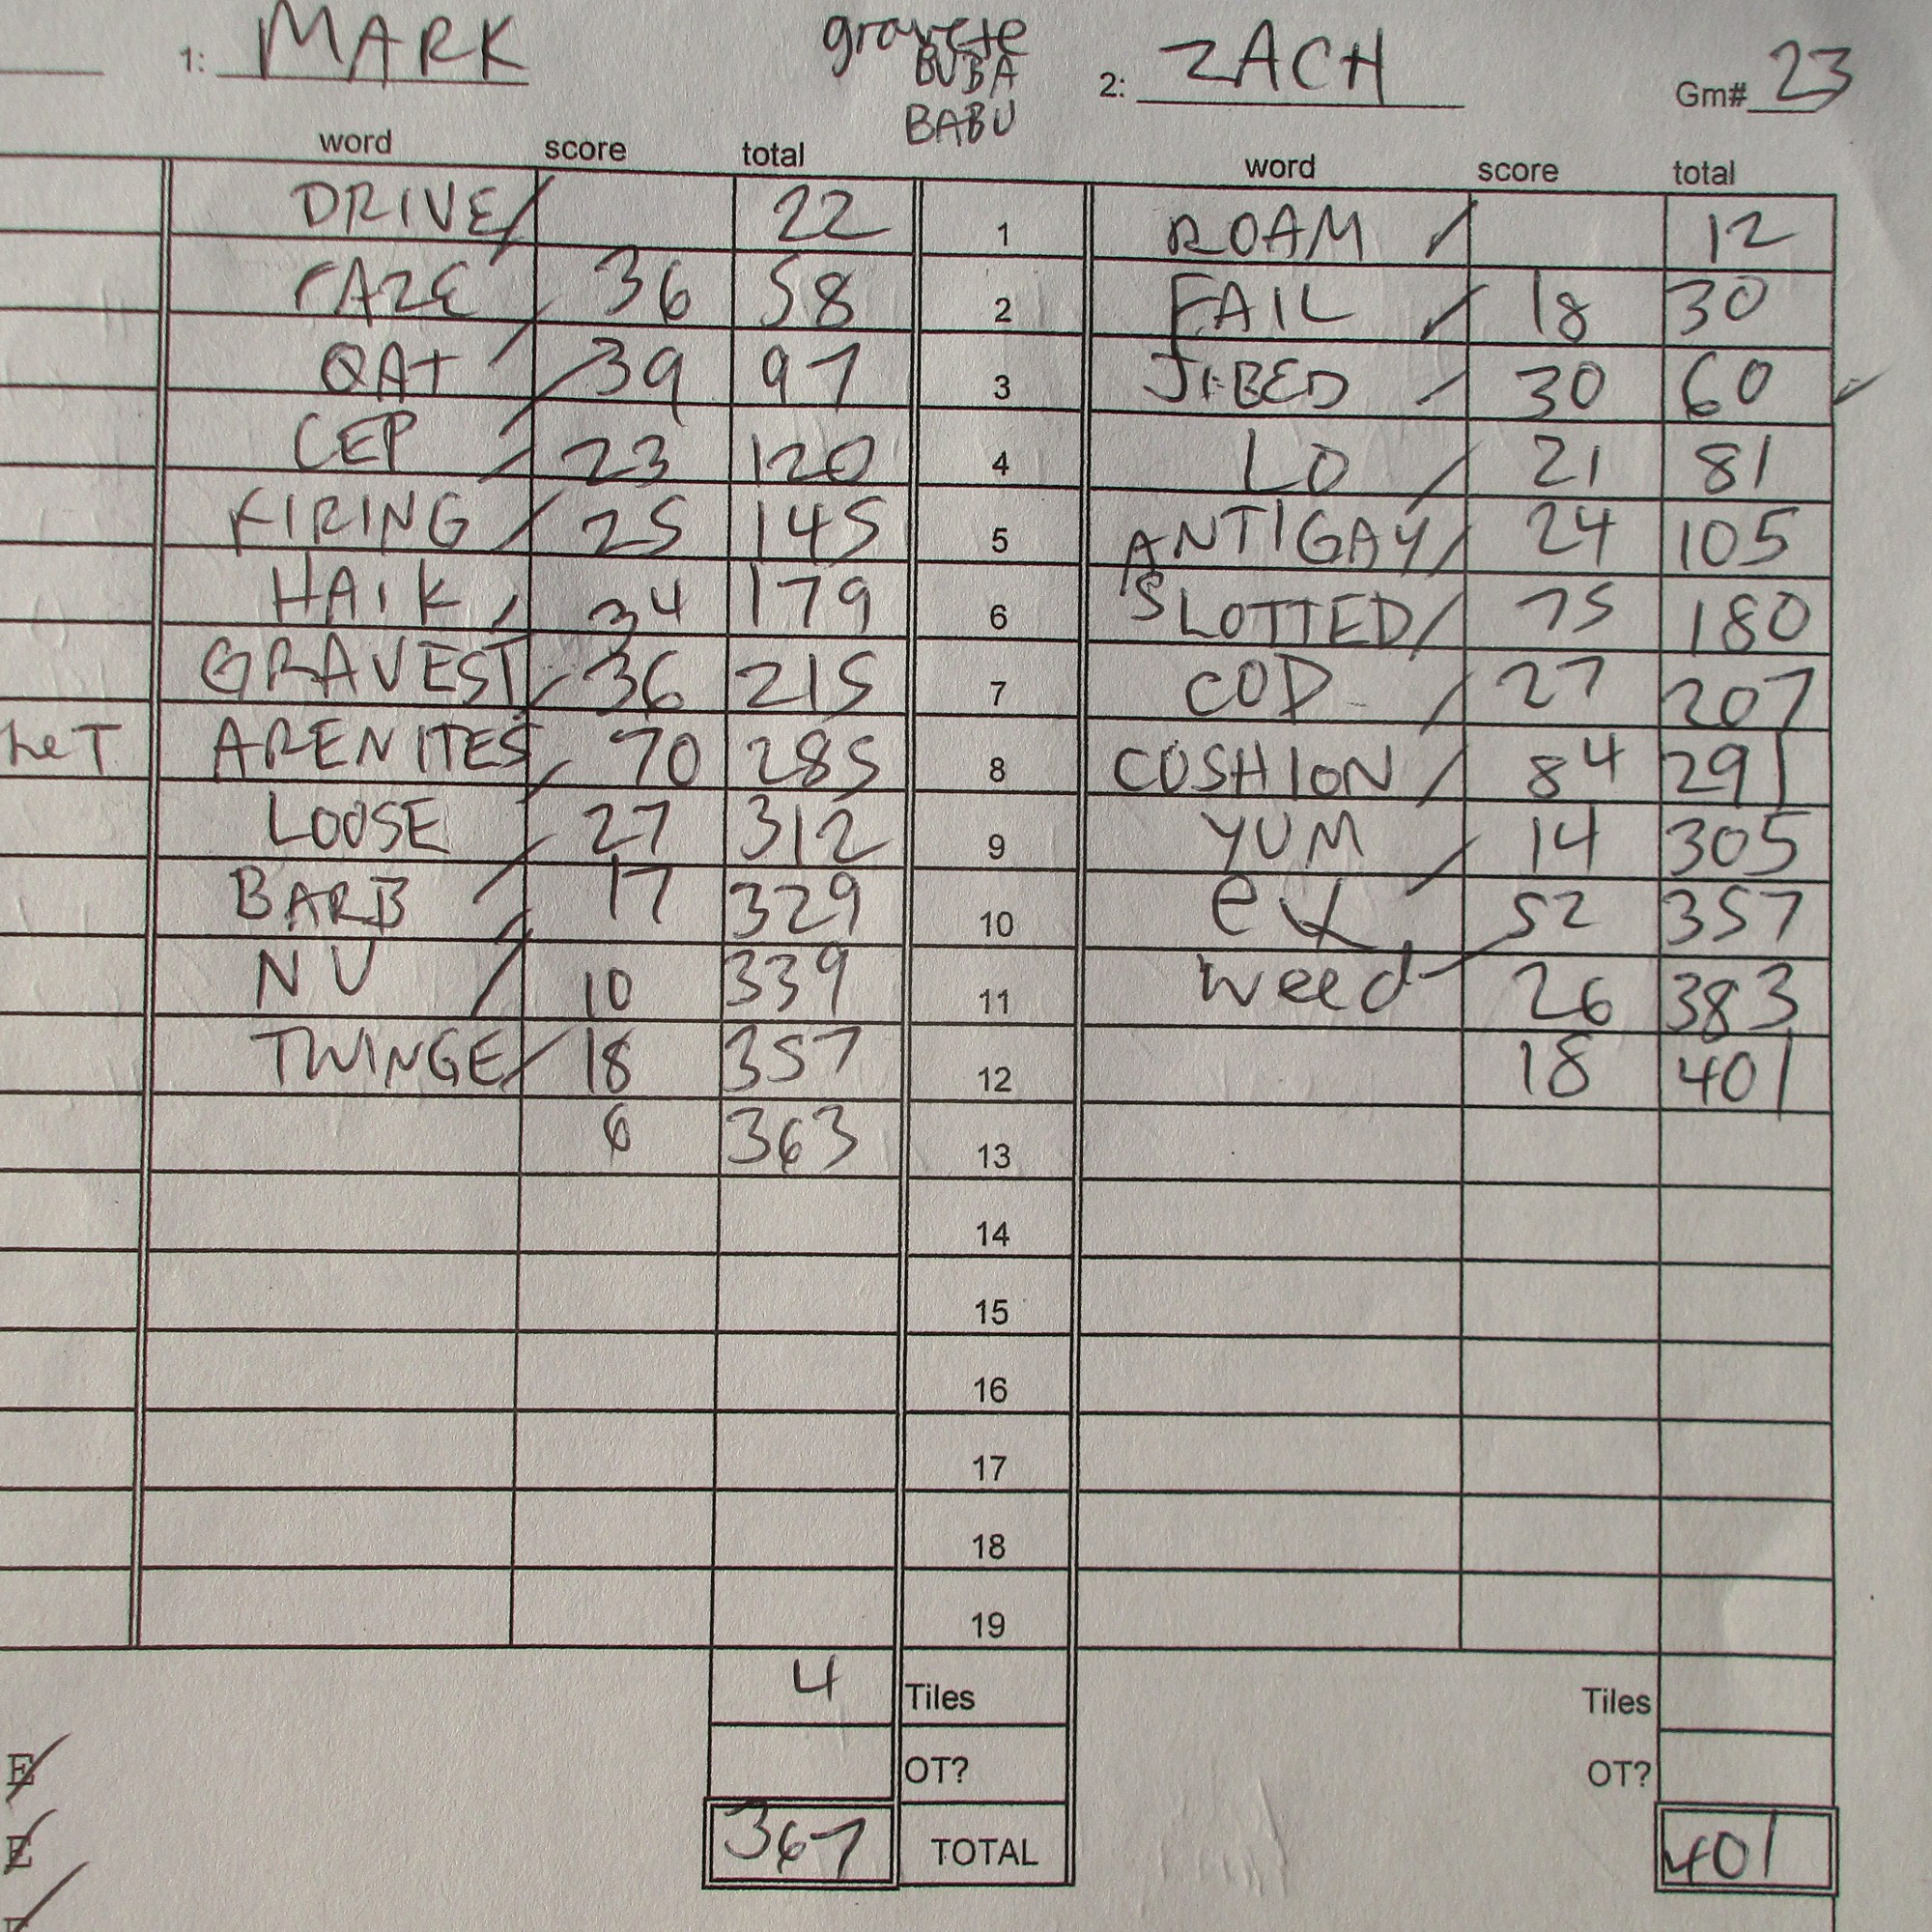 1: MARK gravete 2: ZACH Gm# 23
BUBA
BABU
word score total word score total
DRIVE 22 1 ROAM 12
RAZE 36 58 2 FAIL 18 30
QAT 39 97 3 JIBED 30 60
CEP 23 120 4 LO 21 81
FIRING 25 145 5 ANTIGAY 24 105
HAIK 34 179 6 SLOTTED 75 180
GRAVEST 36 215 7 COD 27 207
heT ARENITES 70 285 8 CUSHION 84 291
LOOSE 27 312 9 YUM 14 305
BARB 17 329 10 ex 52 357
NU 10 339 11 weed 26 383
TWINGE 18 357 12 18 401
6 363 13
14
15
16
17
18
19
4 Tiles Tiles
E OT? OT?
E 367 TOTAL 401